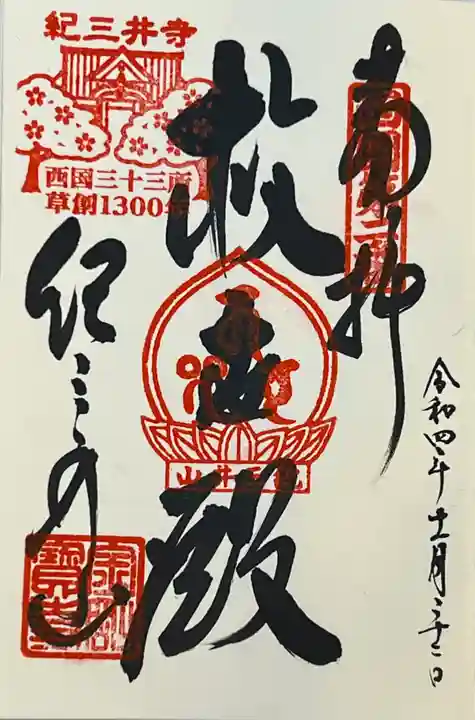 奉拝
西国第二番
令和四年十二月二十二日
救世殿
紀三井山
紀三井寺
西国三十三所
草創1300年
紀三井山